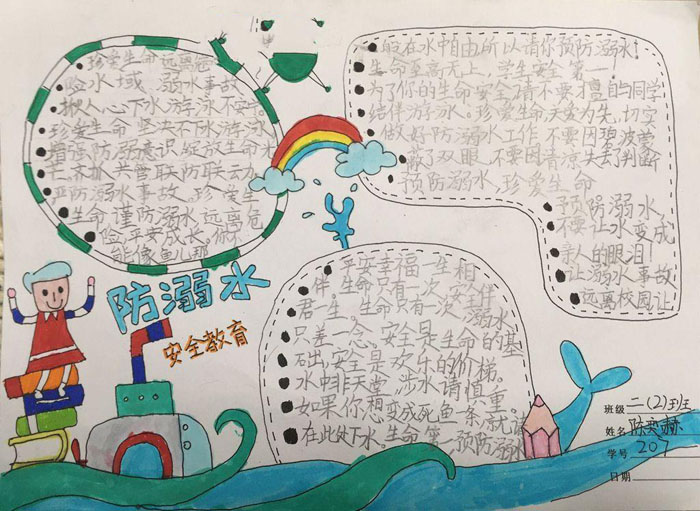 珍爱生命远离危
险水域，溺水事故
揪人心下水游泳不安
珍爱生命，坚决不下水游泳
增强防溺意识绽放生命
齐抓共管联防联去力
严防溺水事故。珍爱生
生命谨防溺水远离危
险，平安成长。你
能像鱼儿那
防溺水
安全教育
般在水中自由所以请你预防溺水！
生命至高无上，学生安全第一！
为了你的生命安全请不要擅自与同学
结伴游泳。珍爱生命关爱为先，切实
做好防溺水工作 不要因碧波蒙
蔽了双眼，不要因清凉失去了判断
预防溺水，珍爱生命
予防溺水，
不要让水变成
亲人的眼泪！
让溺水事故
远离校园让
平安幸福一生相
伴。生命只有一次安全伴
君一生。生命只有一次 溺水
只差一念。安全是生命的基
石出，安全是欢乐的价梯。
水中非天堂，涉水请慎重。
如果你想变成死鱼一条，请
在此处下水，生命第一，预防溺水
班级 二(2)班
姓名 陈
学号 207
日期